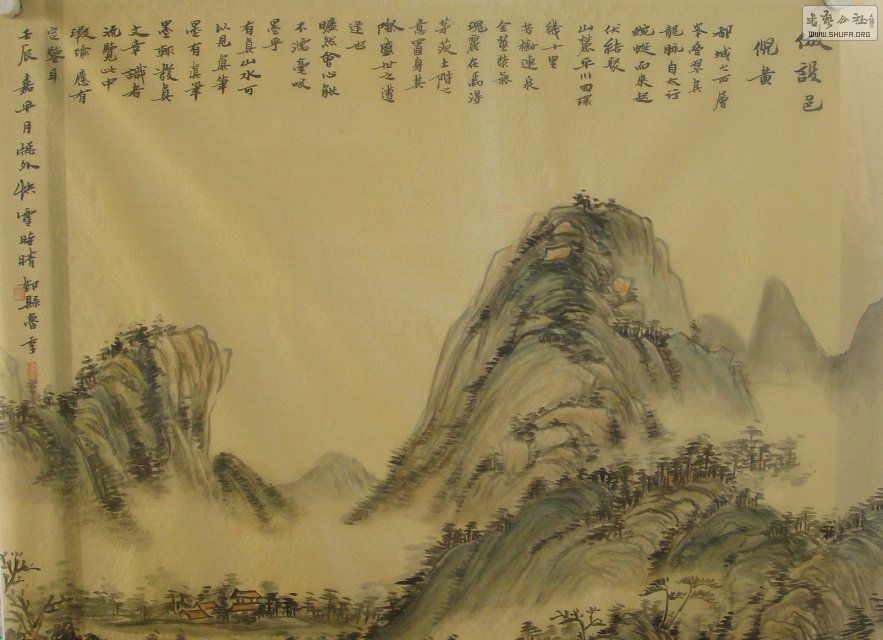 书艺公社
WWW.SHUFA.ORG
倣設色
倪黄
都城之西層
峯叠翠真
龍脈自太行
蜿蜒而來起
伏結聚
山麓平川四環
幾十里
芳樹連泉
金莖紫氣
瑰麗在焉漫
茅茨土附之
意置身其
際盛世之遭
逢也
曠然會心能
不濡毫吮
墨乎
有真山水可
以見真筆
墨有真筆
墨輒發真
文章識者
流覽此中
瑕瑜應有
定鑒耳
壬辰嘉平月外快雪時晴縣魯